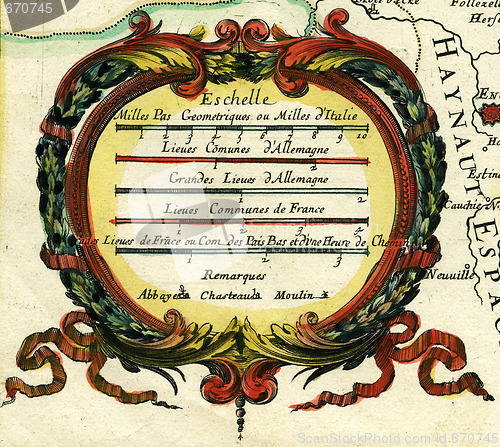 670745
Follezel
Eschelle
Milles Pas Geometriques ou Milles d'Italie
1 2 3 4 5 6 7 8 9 10
Lieues Comunes d'Allemagne
1 2
Grandes Lieues d'Allemagne
1 2
Lieues Communes de France
1 2 3
Lieues de Frãce ou Com. des Pais Bas et d'vne Heure de Chemin
1 2 3
Remarques
Abbaye Chasteau Moulin
HAYNAUT
ESPA
Neuville
© Scanstockphoto.com/670745